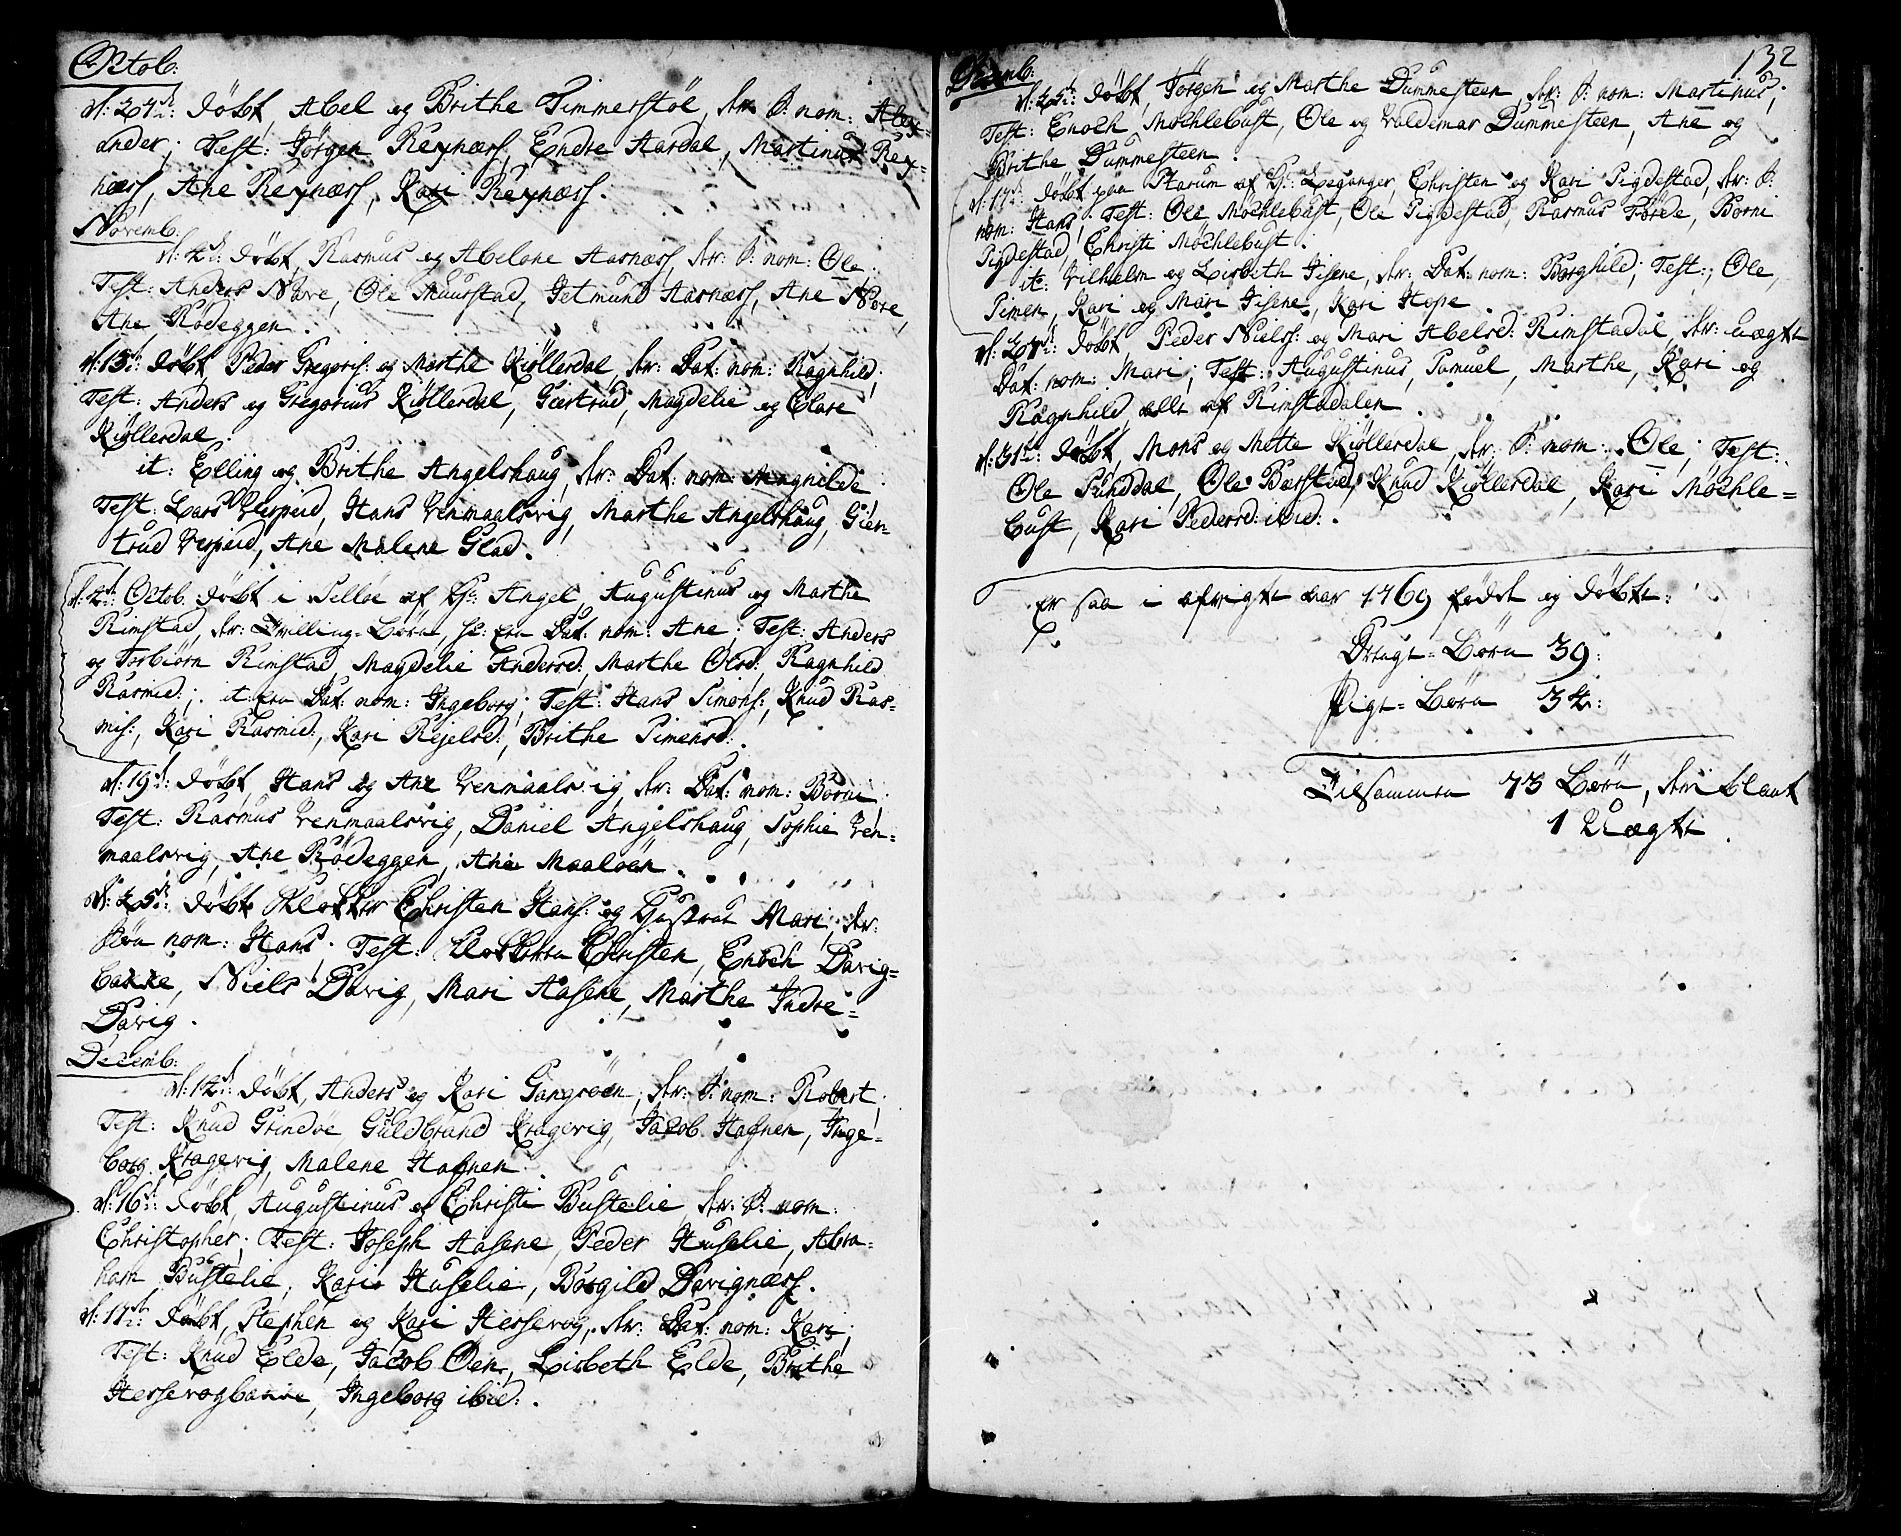 Octob:
d: 27de: döbt, Abel og Brithe Simmerstöl, der: S: nom: Alex-
ander; Test: Jörgen Rexnæss, Endre Aardal, Martinus Rex-
næss, Ane Rexnæss, Kari Rexnæss.
Novemb.
d: 2d: döbt, Rasmus og Abelone Aarnæss, der: S: nom: Ole;
Test: Anders Nøre, Ole Muurstad, Jetmund Aarnæss, Ane Nøre,
Ane Rödeggen.
d: 15d: döbt, Peder Gregoris: og Marthe Kiöllerdal, der: Dat: nom: Ragnhild;
Test: Anders og Gregorius Kiöllerdal, Giertrud, Magdelie og Clare
Kiöllerdal.
it: Elling og Brithe Angelshaug, der: Dat: nom: Magnilde;
Test: Lars Verpeid, Hans Venmaalsvig, Marthe Angelshaug, Gier-
trud Verpeid, Ane Malene Glad.
d: 2d: Octob. döbt i Selløe af Hr: Angel, Augustinus og Marthe
Rimstad, der: Tvilling-Börn, sc: een Dat: nom: Ane; Test: Anders
og Torbiörn Rimstad, Magdelie Andersd:, Marthe Olsd:, Ragnhild
Rasmid:; it: een Dat: nom: Ingeborg; Test: Hans Simons:, Knud Ras-
mis:, Kari Rasmid:, Kari Rejelsd:, Brithe Simensd:.
d: 19d: döbt, Hans og Ane Venmaalsvig, der: Dat: nom: Borni;
Test: Rasmus Venmaalsvig, Daniel Angelshaug, Sophie Ven-
maalsvig, Ane Rödeggen, Ane Maalöen.
d: 25de: döbt Klokker Christen Hans: og Hustrue Mari, der:
Sön nom: Hans; Test: Klokkeren Christen, Enoch Davig-
bakke, Niels Davig, Mari Aasene, Marthe Indre-
Davig.
Decemb:
d: 12d: döbt, Anders og Kari Gangsöen, der: S: nom: Robert;
Test: Knud Grindöe, Guldbrand Kragevig, Jacob Hafnen, Inge-
borg Kragevig, Malene Hafnen.
d: 16d: döbt, Augustinus og Christi Bustelie, der: S: nom:
Christopher; Test: Joseph Aasene, Peder Huselie, Abra-
ham Bustelie, Karie Huselie, Borgild Davignæss.
d: 17de: döbt, Stephen og Kari Hessevog, der: Dat: nom: Kari;
Test: Knud Elde, Jacob Öen, Lisbeth Elde, Brithe
Hessevogbakke, Ingeborg ibid:.
132
Decemb:
d: 25de: döbt, Jörgen og Marthe Dummesteen, der: S: nom: Martinus;
Test: Enoch Möchlebust, Ole og Valdemar Dummesteen, Ane og
Brithe Dummesteen.
d: 17d: döbt paa Starum af Hr: Leganger, Christen og Kari Sigdestad, der: S:
nom: Hans; Test: Ole Möchlebust, Ole Sigdestad, Rasmus Förde, Borni
Sigdestad, Christi Möchlebust.
it: Vilhelm og Lisbeth Jisene, der: Dat: nom: Borghild; Test:, Ole,
Simen, Kari og Mari Jisene, Kari Hope.
d: 27d: döbt, Peder Niels: og Mari Abelsd: Rimstadal, der: uægte
Dat: nom: Mari; Test: Augustinus, Samuel, Marthe, Kari og
Ragnhild, alle af Rimstadalen.
d: 31te: döbt, Mons og Mette Kiöllerdal, der: S: nom: Ole; Test:
Ole Sunddal, Ole Barstad, Knud Kiöllerdal, Kari Möchle-
bust, Kari Pedersd: ibid:.
Er saa i afvigte aar 1769 födt og döbte:
Drenge-Börn 39:
Pige-Börn 34:
Tilsammen 73 Börn, deriblant
1 Uægte.